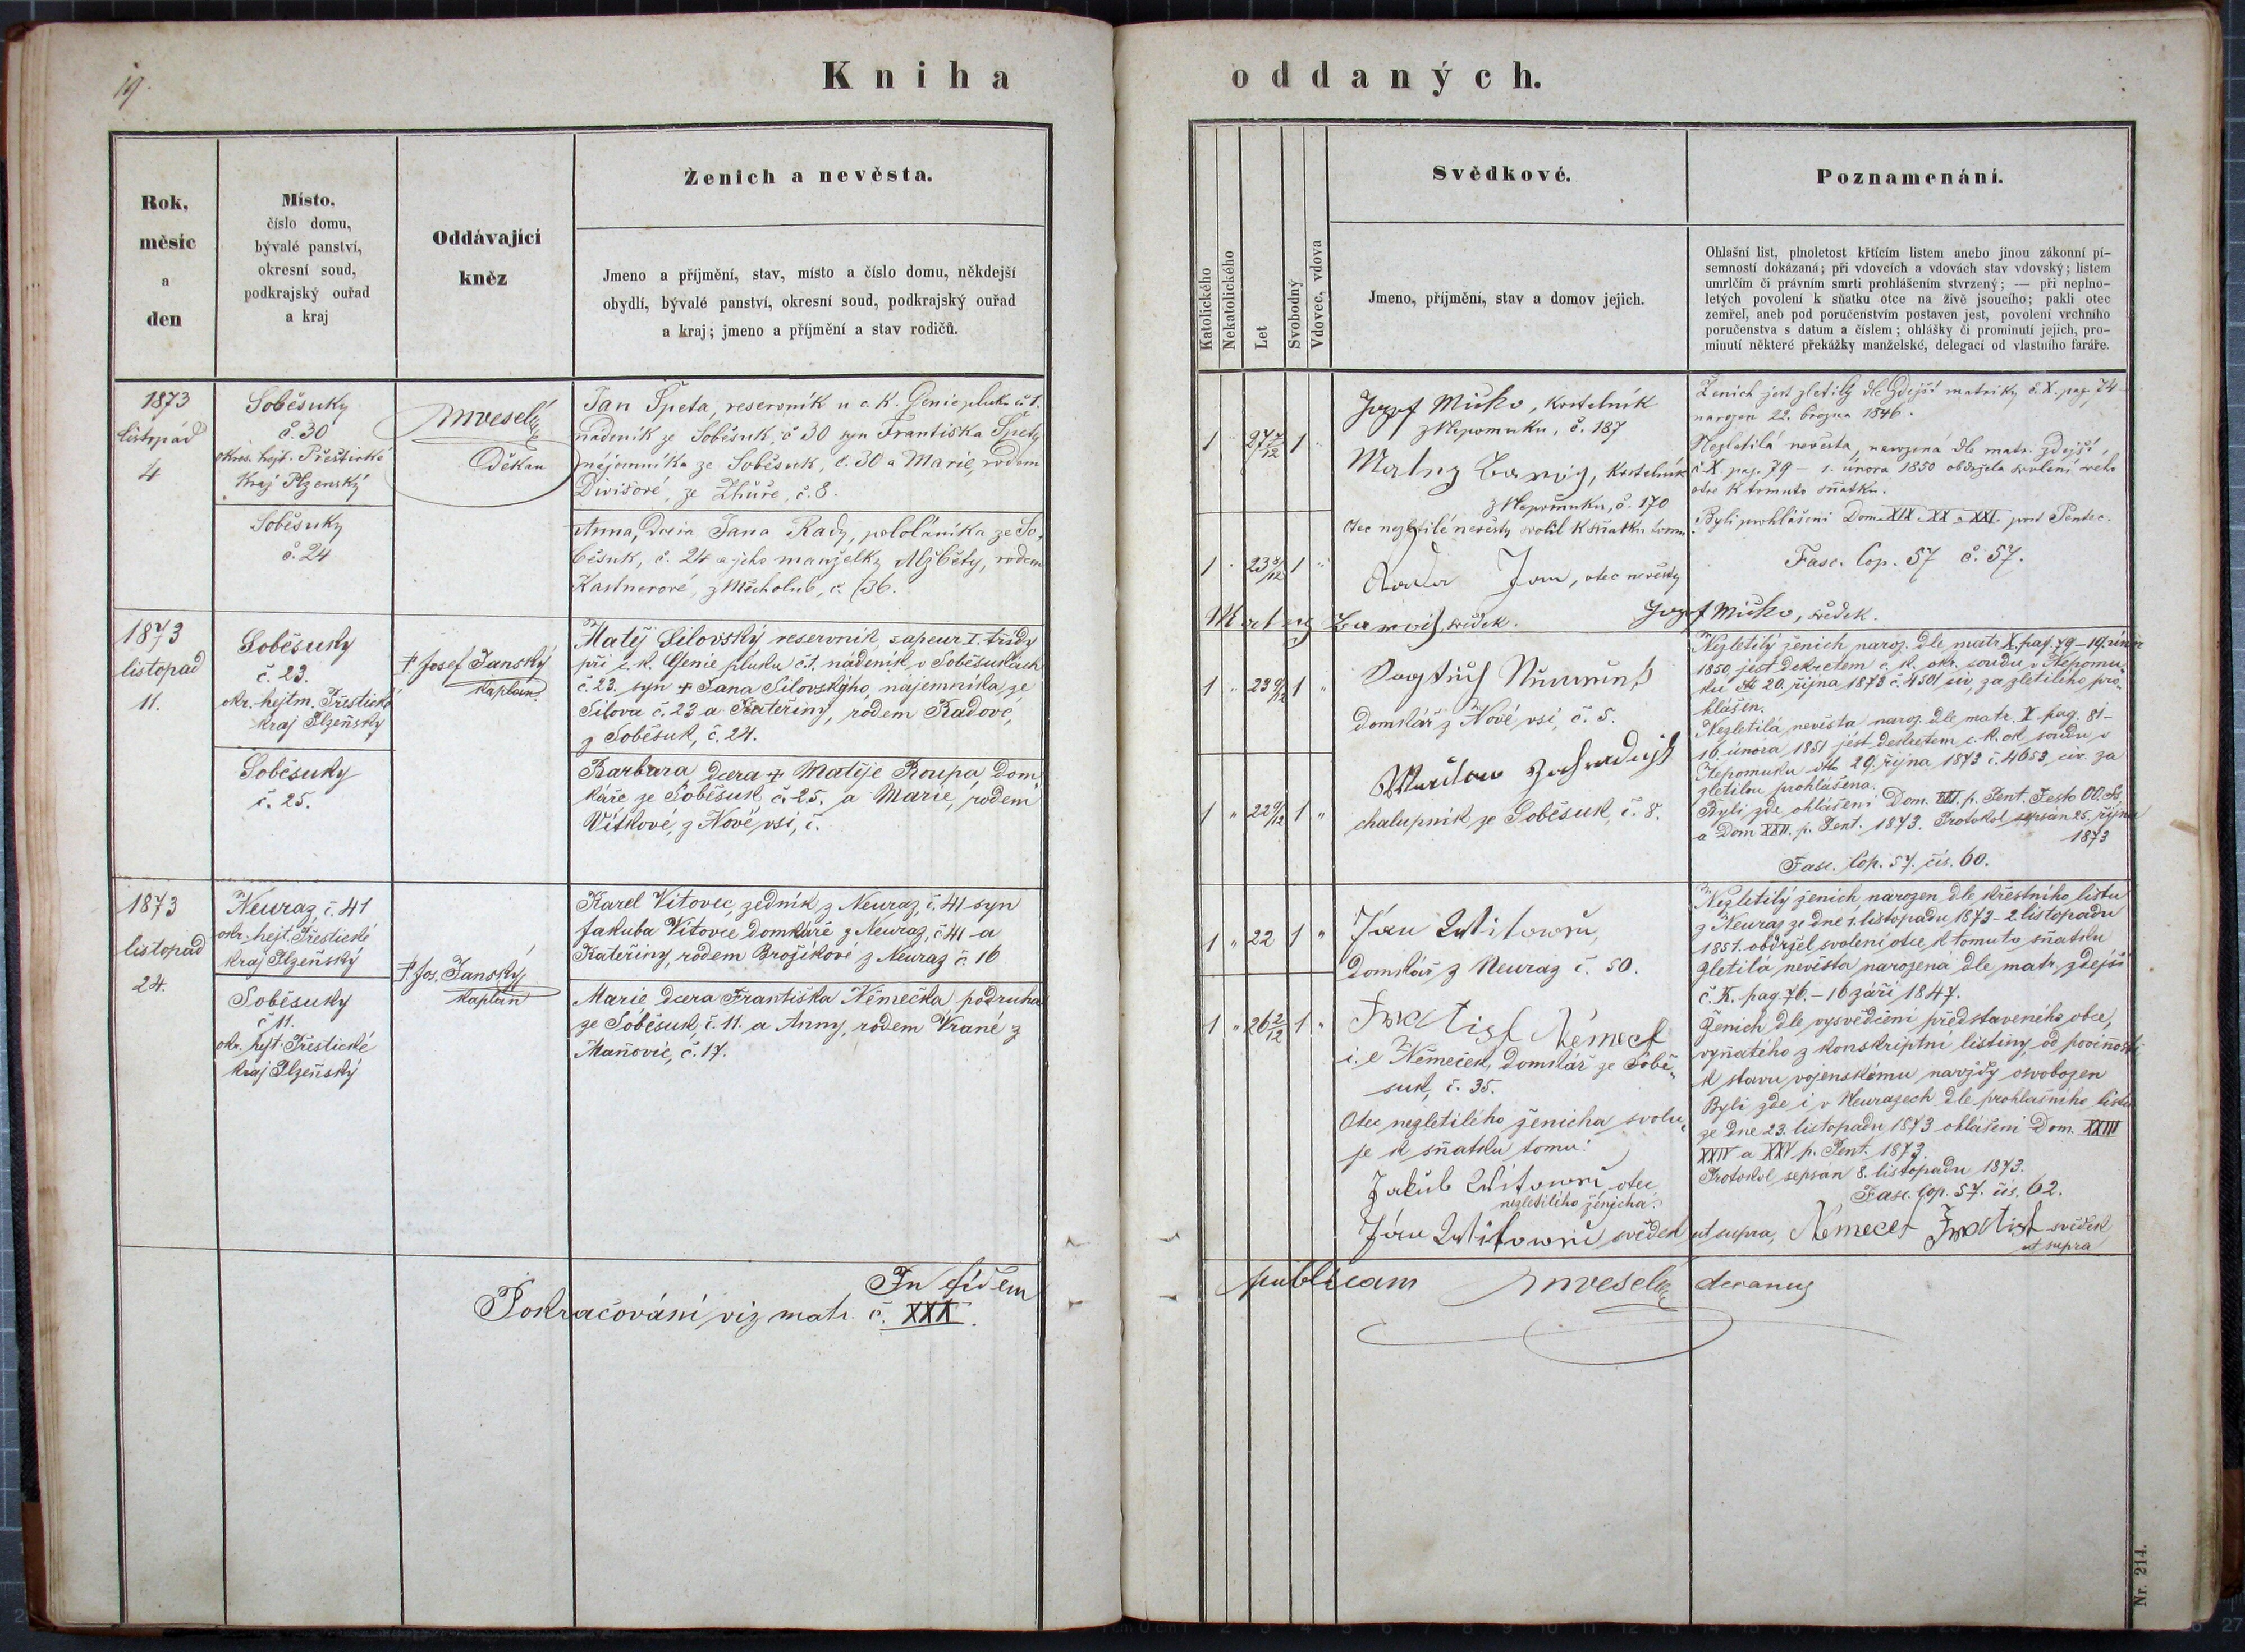 19.
Kniha
oddaných.
Rok,
měsíc
a
den
Místo,
číslo domu,
bývalé panství,
okresní soud,
podkrajský ouřad
a kraj
Oddávající
kněz
Ženich a nevěsta.
Jmeno a příjmění, stav, místo a číslo domu, někdejší
obydlí, bývalé panství, okresní soud, podkrajský ouřad
a kraj; jmeno a příjmění a stav rodičů.
Katolického
Nekatolického
Let
Svobodný
Vdovec, vdova
Svědkové.
Jmeno, příjmění, stav a domov jejich.
Poznamenání.
Ohlašní list, plnoletost křticím listem anebo jinou zákonní pí-
semností dokázaná; při vdovcích a vdovách stav vdovský; listem
umrlčím či právním smrti prohlášením stvrzený; — při neplno-
letých povolení k sňatku otce na živě jsoucího; pakli otec
zemřel, aneb pod poručenstvím postaven jest, povolení vrchního
poručenstva s datum a číslem; ohlášky či prominutí jejich, pro-
minutí některé překážky manželské, delegací od vlastního faráře.
1873
listopád
4
Soběsuky
č. 30
okres. hejt. Přeštické
Kraj Plzenský
Soběsuky
č. 24
Veselý
Děkan
Jan Špeta, reservník u c. K. Genie pluku č 1.
nadeník ze Soběsuk, č 30 syn Františka Špety
nájemníka ze Soběsuk, č. 30 a Marie, rodem
Divišové, ze Zhůře, č. 8.
Anna, Dcera Jana Rady, pololáníka ze So-
běsuk, č. 24 a jeho manželky Alžběty, rodem
Kastnerové, z Měcholub, č. 36.
1 27 7/12 1
1 23 8/12 1
Josef Miško, Kostelník
z Nepomuku, č. 187
Kostelník
z Nepomuku, č. 170
Otec nezletilé nevěsty svolil k sňatku tomu
Rada Jan, otec nevěsty
svědek.
Josef Miško, svědek.
Ženich jest zletilý dle zdejší matriky č. X. pag. 74 -
narozen 22. března 1846.
Nezletilá nevěsta, narozená dle matr. zdejší,
č. X. pag. 79 - 1. února 1850 obdržela svolení svého
otce K tomuto sňatku.
Byli prohlášeni Dom. XIX. XX a XXI. post Pentec.
Fasc. Cop. 57 č. 57.
1873
listopad
11.
Soběsuky
č. 23.
okr. hejtm. Přeštické
kraj Plzeňský
Soběsuky
č. 25.
Josef Janský
Kaplan
Matěj Silovský reservník, sapeur I. třídy
při c. k. Genie pluku č 1. nádeník v Soběsukách
č. 23. syn + Jana Silovského, nájemníka ze
Silova č. 23 a Kateřiny, rodem Radové,
z Soběsuk, č. 24.
Barbara dcera + Matěje Roupa, Dom
káře ze Soběsuk č. 25. a Marie, rodem
Vítkové, z Nové vsi, č.
1 " 23 9/12 1 "
1 " 22 9/12 1 "
domkář z Nové vsi, č. 5.
chalupník ze Soběsuk, č. 8.
Nezletilý ženich naroz. dle matr. X. pag. 79 - 19. února
1850, jest dekretem c. k. okr. soudu v Nepomu-
ku dto 20. října 1873 č. 4501 civ, za zletilého pro-
hlášen.
Nezletilá nevěsta naroz. dle matr. X. pag. 81 -
16. února 1851 jest dekretem c. k. ok soudu v
Nepomuku dto 29. října 1873 č. 4653 civ. za
zletilou prohlášena.
Byli zde ohlášeni Dom. XXI. p. Pent. Festo OO. SS.
a Dom XXII. p. Pent. 1873. Protokol sepsán 25. října
1873
Fasc. Cop. 57. čís. 60.
1873
listopad
24.
Neuraz, č. 41
okr. hejt. Přeštické
kraj Plzeňský
Soběsuky
č 11.
okr. hejt. Přeštické
kraj Plzeňský
Jos. Janský
kaplan
Karel Vitovec, zedník z Neuraz, č. 41 syn
Jakuba Vitovce domkáře z Neuraz, č 41 a
Kateřiny, rodem Brožíkové z Neuraz č. 16
Marie dcera Františka Němečka podruha
ze Soběsuk, č. 11. a Anny, rodem Vrané z
Maňovic, č. 17.
1 " 22 1 "
1 " 26 2/12 1 "
Domkář z Neuraz č. 50.
i. e Němeček, domkář ze Sobě-
suk, č. 35.
Otec nezletilého ženicha svolu-
je k sňatku tomu:
otec
nezletilého ženicha.
svědek ut supra,
svědek
ut supra
Nezletilý ženich, narozen dle křestního listu
z Neuraz ze dne 1. listopadu 1873 - 2 listopadu
1851. obdržel svolení otce k tomuto sňatku
Zletilá nevěsta narozená dle matr. zdejší
č. X. pag. 76. - 16 září 1847.
Ženich dle vysvědčení představeného obce,
vyňatého z konskriptní listiny, od povinnosti
k stavu vojenskému navždy osvobozen
Byli zde i v Neurazech dle prohlašního listu
ze dne 23. listopadu 1873 ohlášeni Dom. XXIII
XXIV a XXV p. Pent. 1873.
Protokol sepsán 8. listopadu 1873.
Fasc. Cop. 57. čís. 62.
In fidem
publicam
Veselý
decanus
Pokračování viz matr. č. XXX.
Nr. 214.